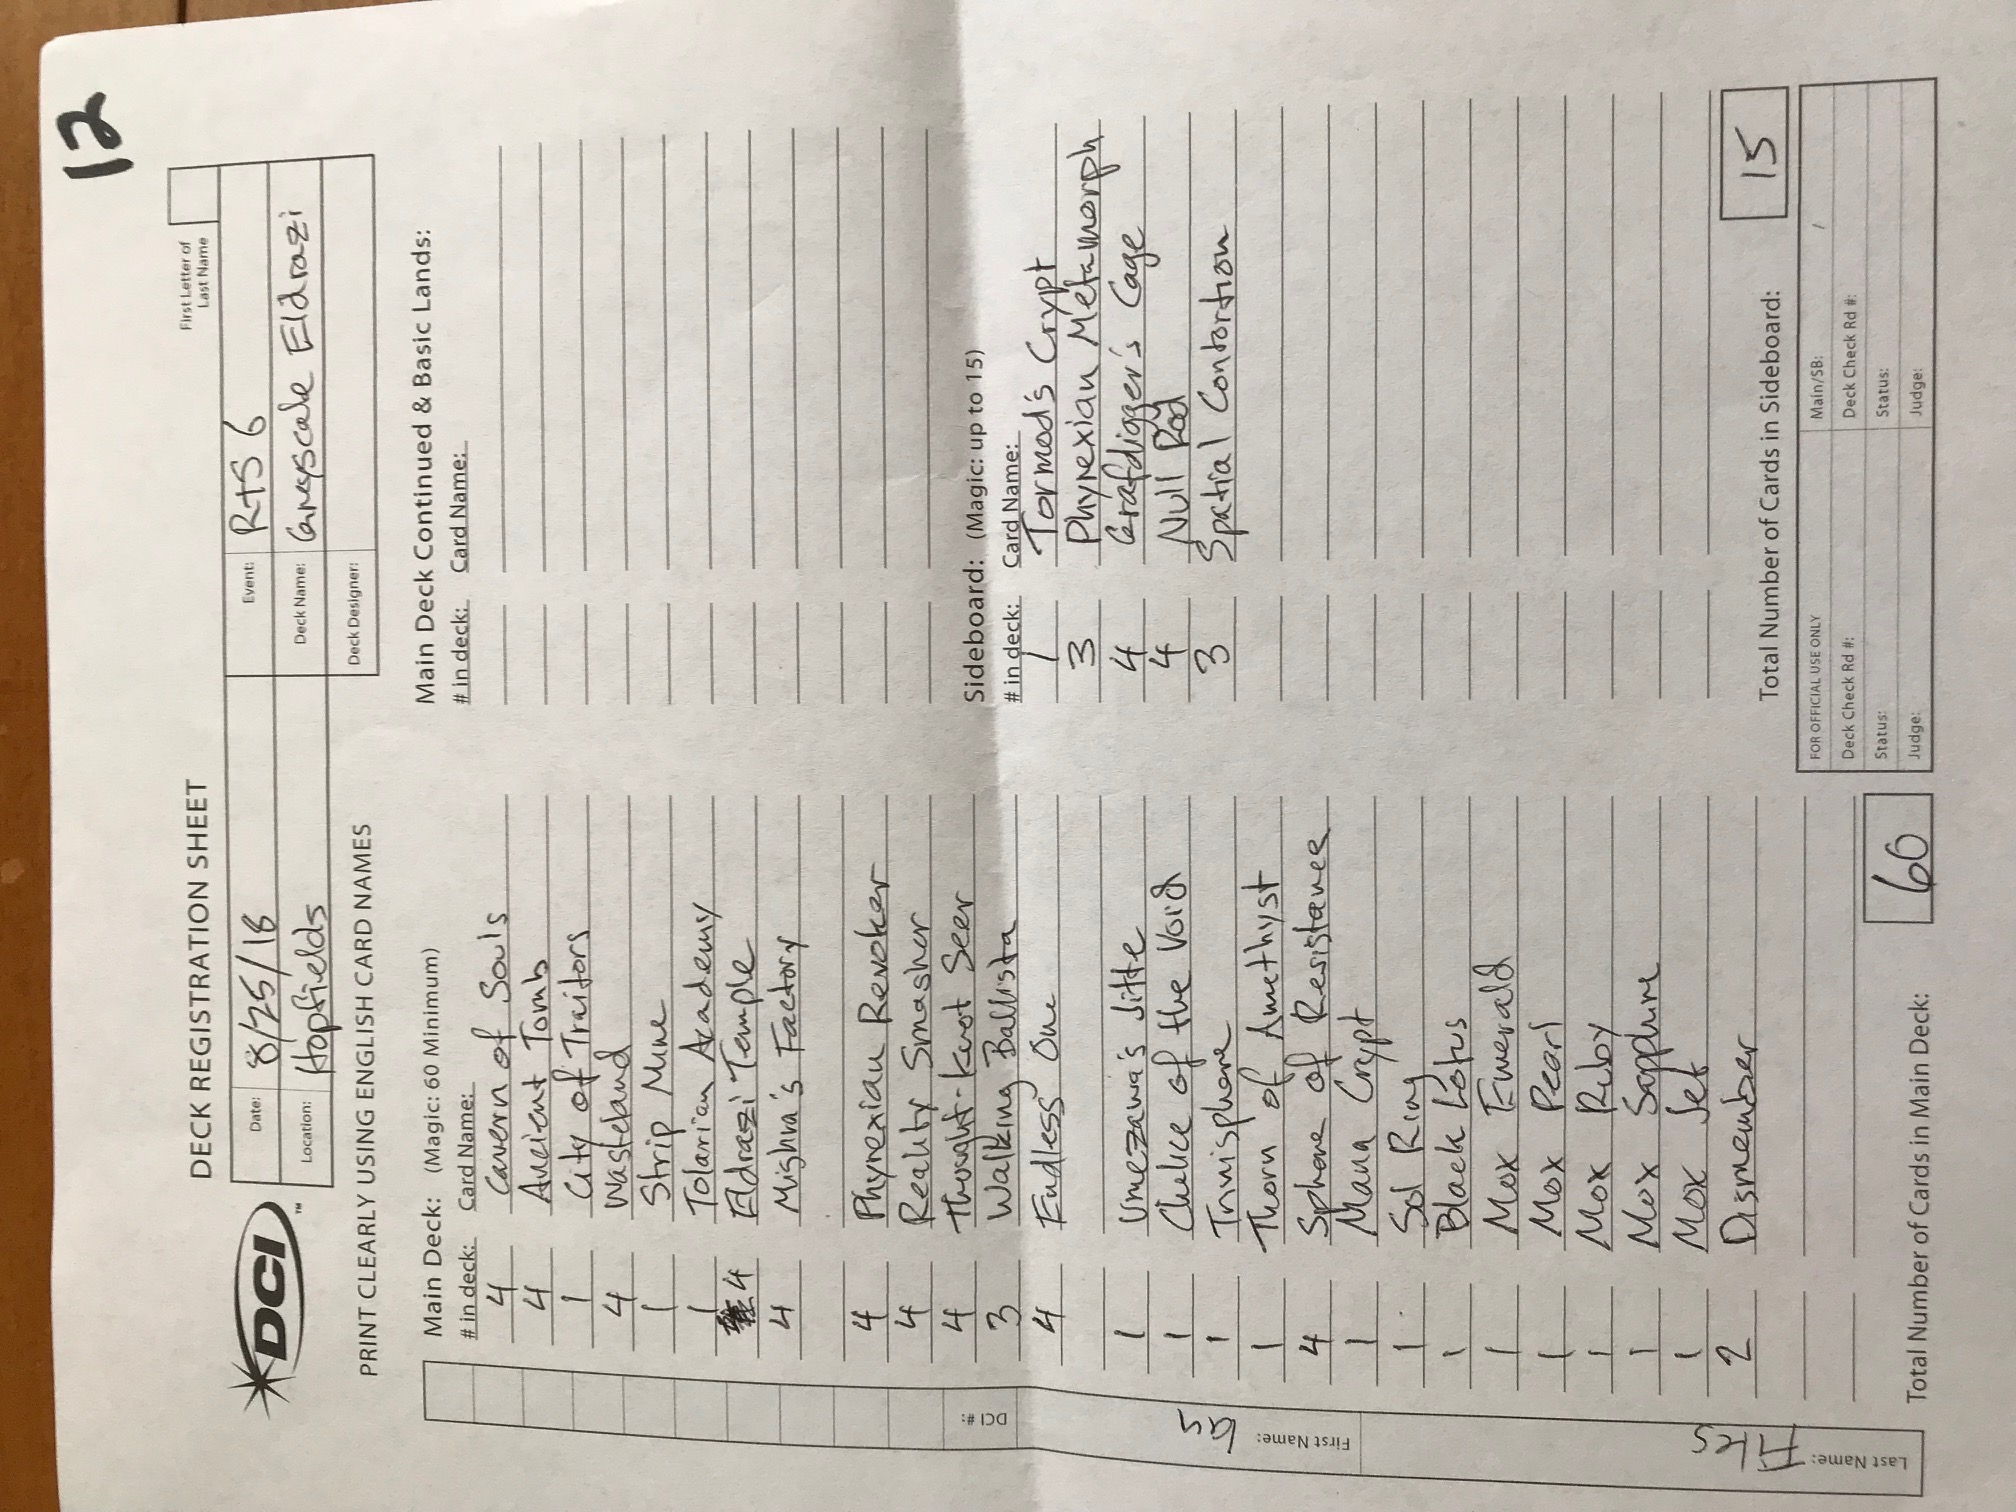 12
DECK REGISTRATION SHEET
First Letter of
Last Name
DCI
TM
Date: 8/25/18
Event: RtS 6
Location: Hopfields
Deck Name: Greyscale Eldrazi
Deck Designer:
PRINT CLEARLY USING ENGLISH CARD NAMES
Main Deck: (Magic: 60 Minimum)
# in deck: Card Name:
4 Cavern of Souls
4 Ancient Tomb
1 City of Traitors
4 Wasteland
1 Strip Mine
1 Tolarian Academy
4 Eldrazi Temple
4 Mishra's Factory
4 Phyrexian Revoker
4 Reality Smasher
4 Thought-Knot Seer
3 Walking Ballista
4 Endless One
1 Umezawa's Jitte
1 Chalice of the Void
1 Trinisphere
1 Thorn of Amethyst
4 Sphere of Resistance
1 Mana Crypt
1 Sol Ring
1 Black Lotus
1 Mox Emerald
1 Mox Pearl
1 Mox Ruby
1 Mox Sapphire
1 Mox Jet
2 Dismember
Total Number of Cards in Main Deck: 60
Main Deck Continued & Basic Lands:
# in deck: Card Name:
Sideboard: (Magic: up to 15)
# in deck: Card Name:
1 Tormod's Crypt
3 Phyrexian Metamorph
4 Grafdigger's Cage
4 Null Rod
3 Spatial Contortion
Total Number of Cards in Sideboard: 15
FOR OFFICIAL USE ONLY
Main/SB: /
Deck Check Rd #:
Deck Check Rd #:
Status:
Status:
Judge:
Judge:
DCI #:
First Name: Ian
Last Name: Fikes